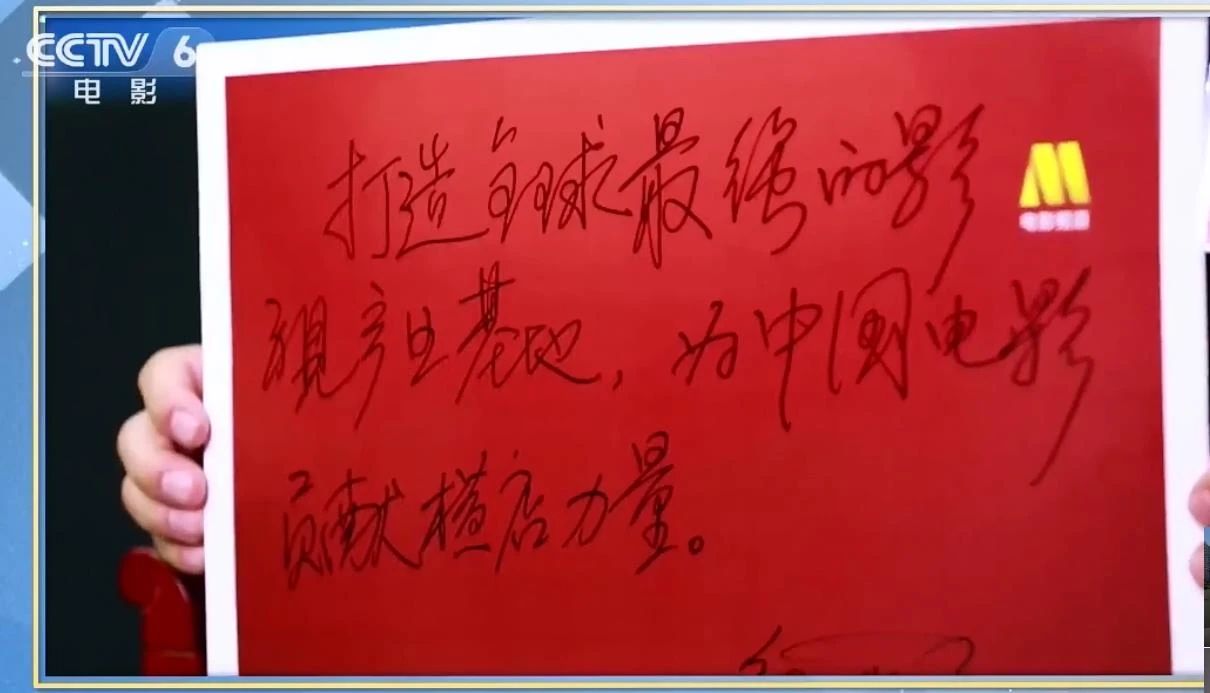 CCTV 6
电影
打造全球最强的影
视产业基地，为中国电影
贡献横店力量。
电影频道